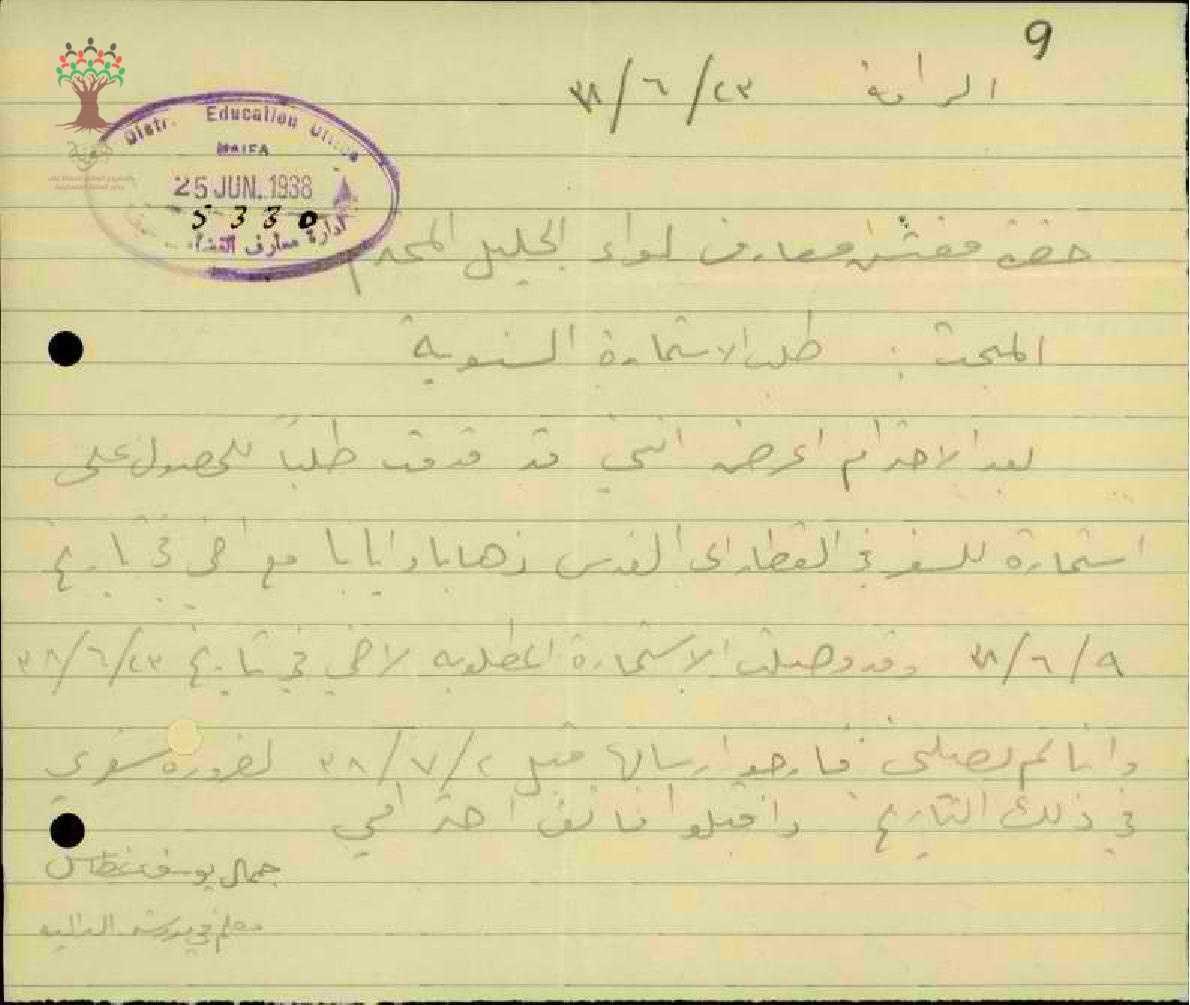 9
الرامة ٢٣/٦/٣٨
Distr. Education Office
HAIFA
25 JUN. 1938
5330
ادارة معارف
حضرة مفتش معارف لواء الجليل المحترم
المبحث : طلب الاستمارة السنوية
بعد الاحترام اعرض انني قد قدمت طلباً للحصول على
استمارة للسفر في القطار الى القدس ذهابا وايابا مع اخي في تاريخ
٩/٦/٣٨ وقد وصلت الاستمارة المطلوبه لاخي في تاريخ ٢٣/٦/٣٨
وانا لم تصلني فارجو ارسالها قبل ٢/٧/٣٨ لضرورة سفري
في ذلك التاريخ واقبلوا فائق احترامي
جمال يوسف
معلم في مدرسة الرامه